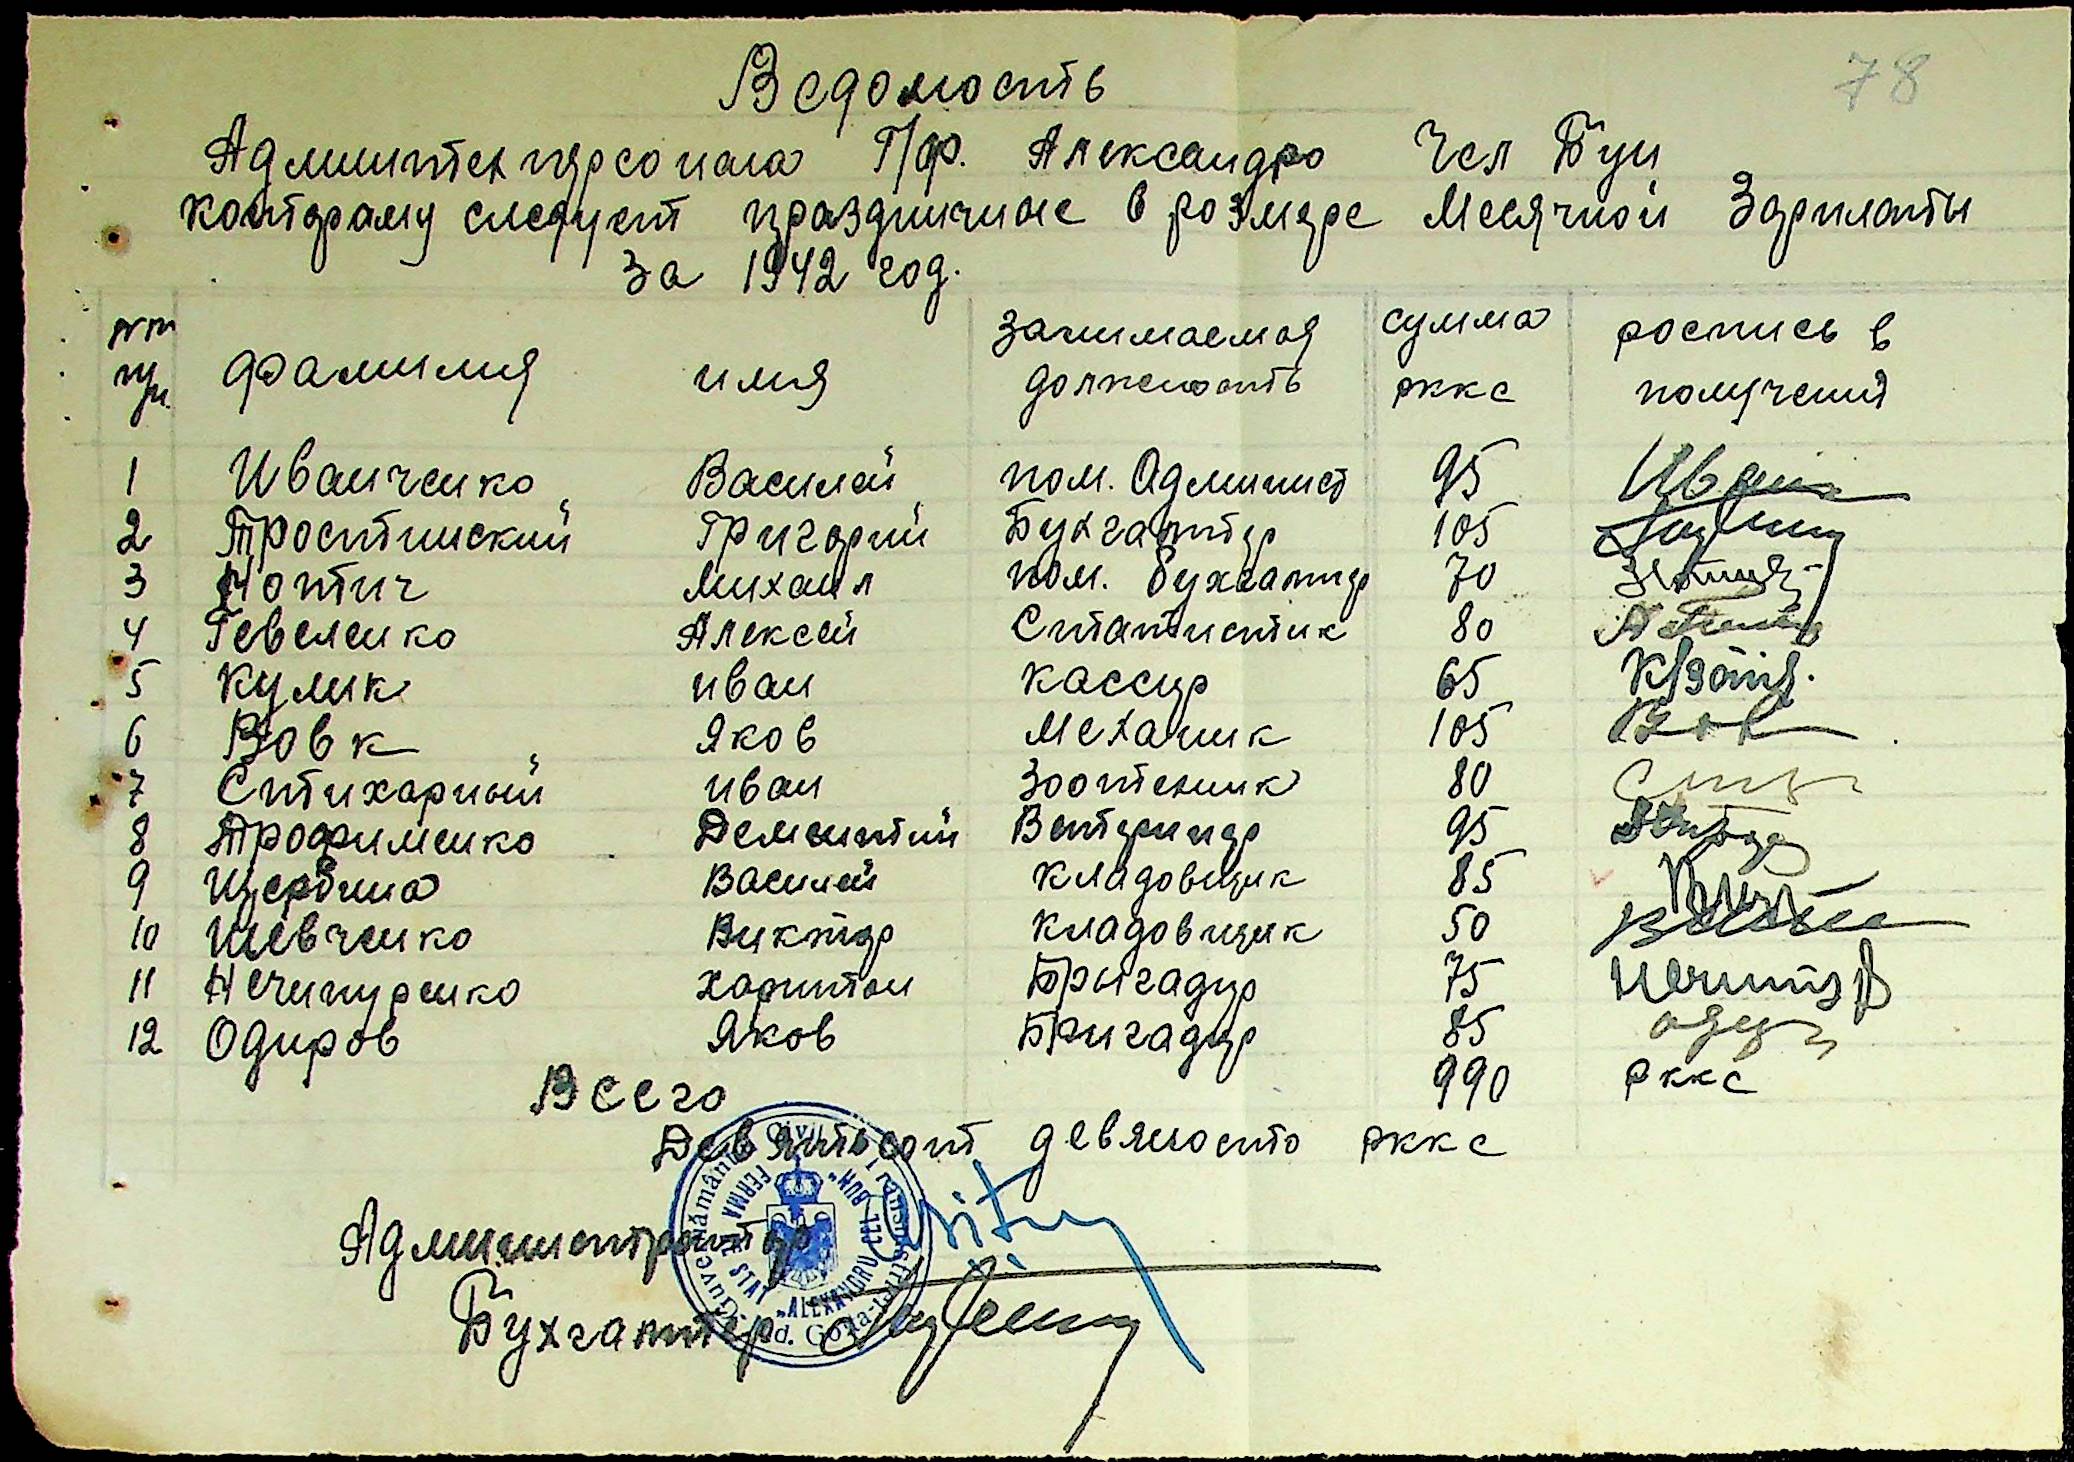 78
Ведомость
Админтех персонала Г/ф. Александро Чел Бун
которому следует праздничные в розмере Месячной Зарплаты
За 1942 год.
№№ пп. фамилия имя занимаемая должность сумма рккс роспись в получений
1 Иванченко Василий пом. Админист 95 Иван
2 Тростинский Григорий Бухгалтер 105
3 Нотич Михаил пом. бухгалтер 70
4 Гевеленко Алексей Статистик 80
5 Кулик иван кассир 65
6 Вовк Яков механик 105 Вов
7 Стихарный иван Зоотехник 80
8 Трофименко Дементий Ветеринар 95
9 Щербина Василий кладовщик 85
10 Шевченко Виктор кладовщик 50
11 Нечипуренко Харитон Брыгадир 75
12 Одиров Яков Бригадир 85
Всего 990 рккс
Девятьсот девяносто рккс
Администратор
Бухгалтер
Guvernământul Civil al Transnistriei Jud. Golta
FERMA DE STAT „ALEXANDRU CEL BUN"